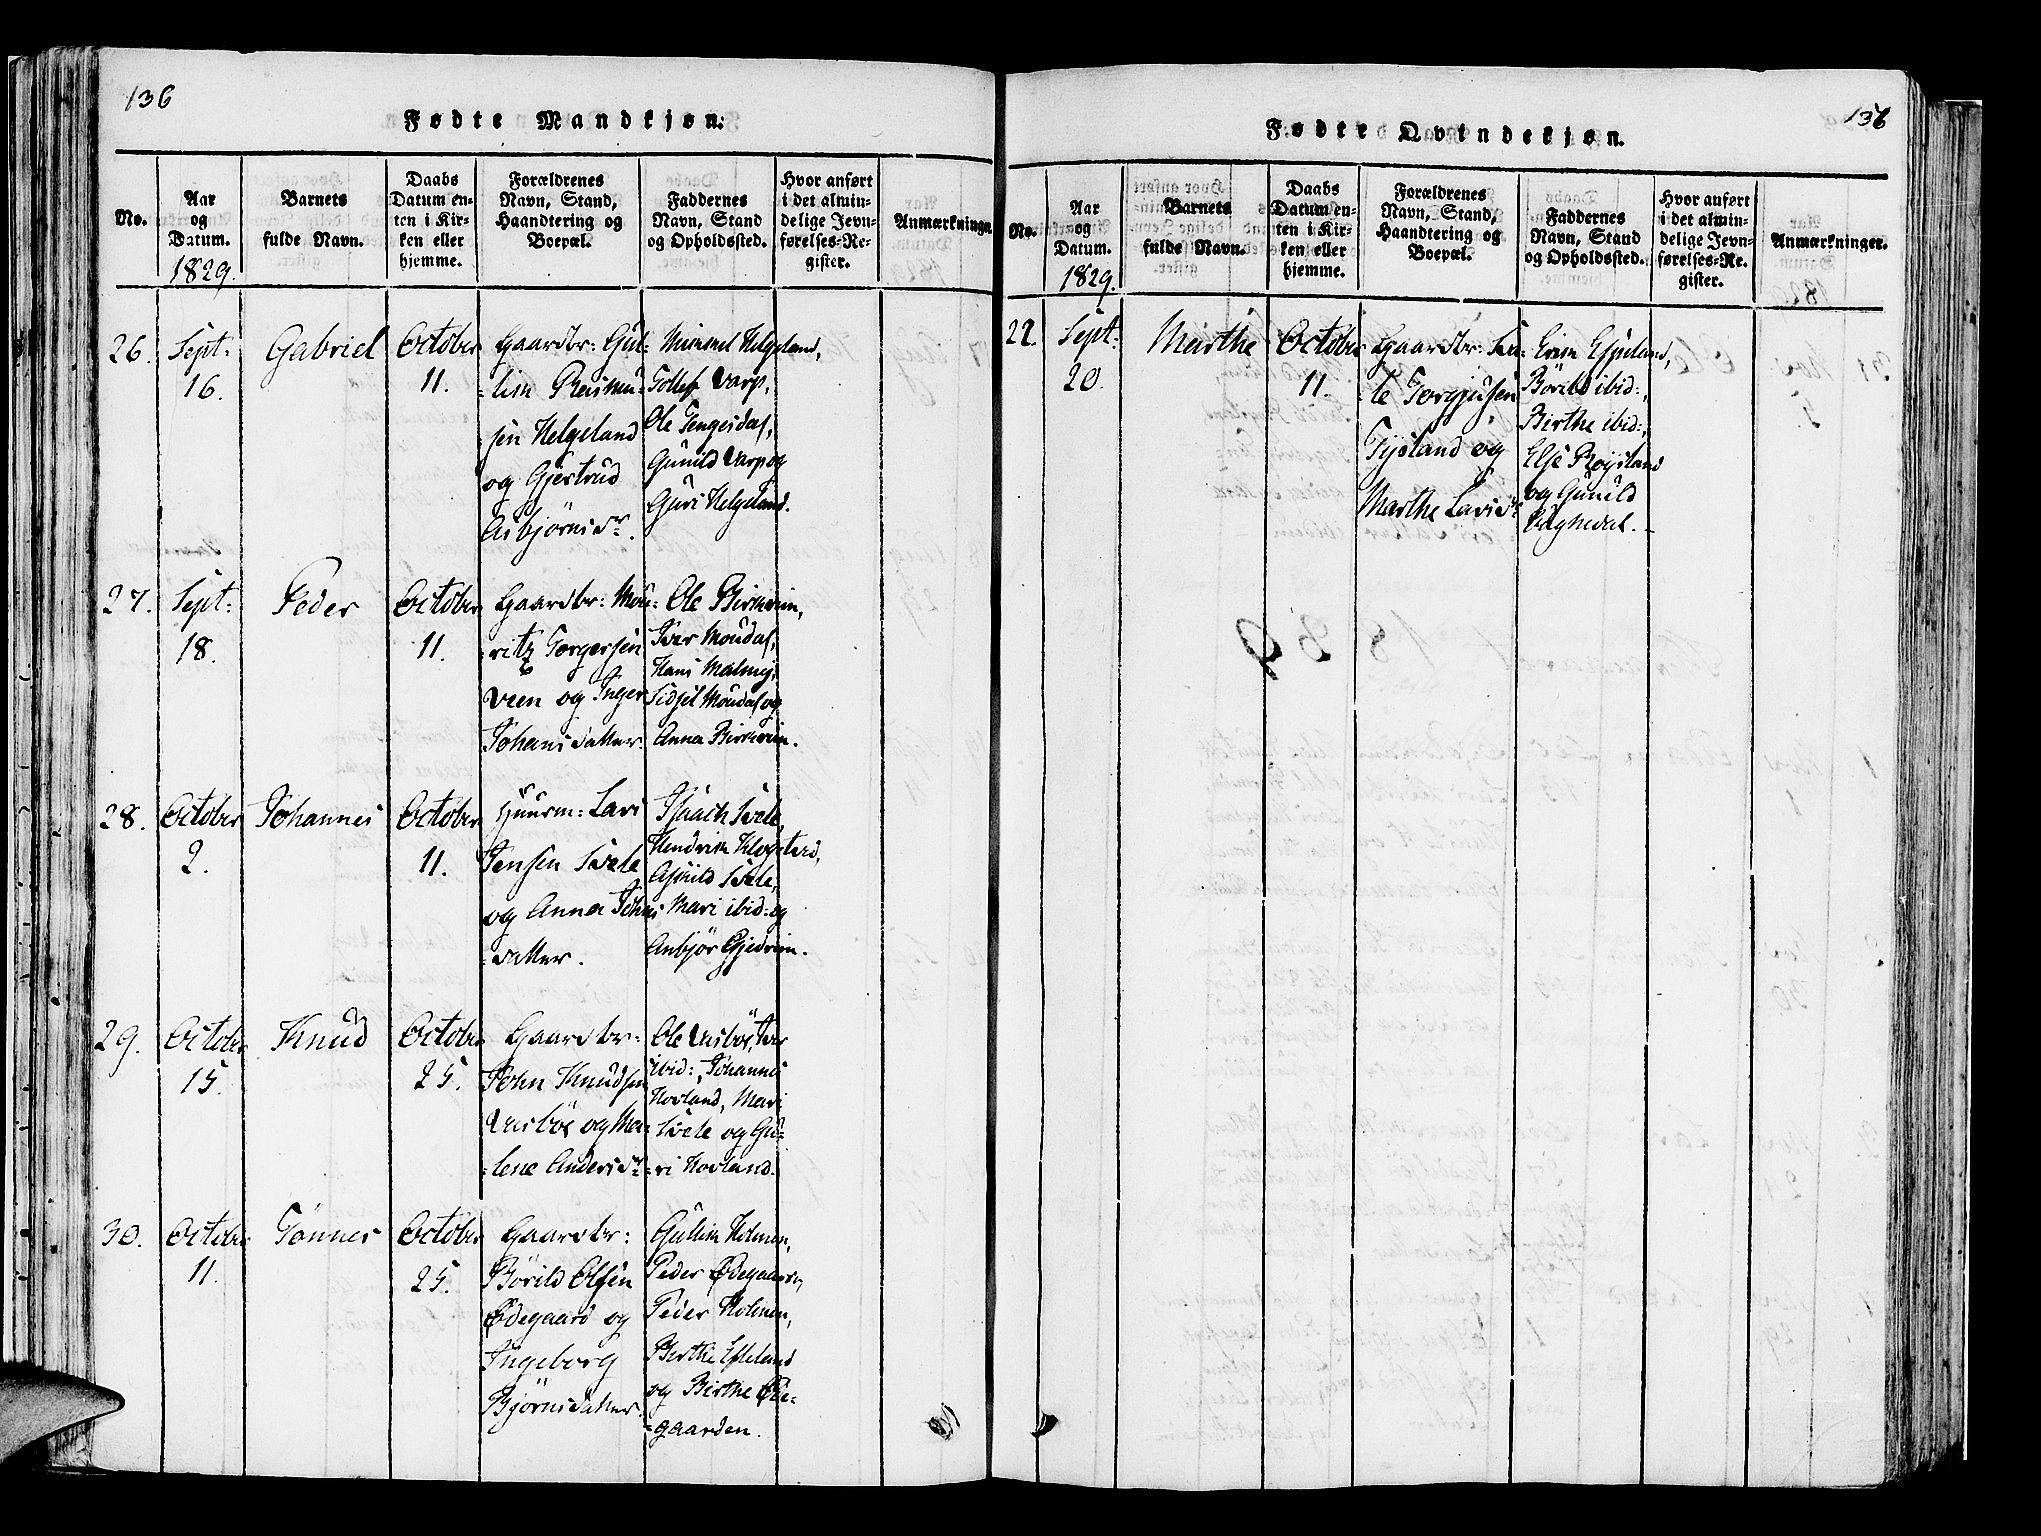 136
Fødte Mandkjøn.
No.
Aar
og
Datum.
1829.
Barnets
fulde Navn.
Daabs
Datum en-
ten i Kir-
ken eller
hjemme.
Forældrenes
Navn, Stand,
Haandtering og
Boepæl.
Faddernes
Navn, Stand
og Opholdssted.
Hvor anført
i det almin-
delige Jevn-
førelses-Re-
gister.
Anmærkninger
26.
Sept:
16.
Gabriel
October
11.
Gaardbr: Gut-
-lim Rasmu-
sen Helgeland
og Gjertrud
Asbjørnsdr.
Mimmel Helgeland,
Tollef Varp,
Ole Tengesdal,
Gunild Varp og
Guri Helgeland.
27.
Sept:
18.
Peder
October
11.
Gaardbr: Mou-
-ritz Torgersen
Veen og Inger
Johansdatter.
Ole Birkrem,
Iver Moudal,
Hans Malmej,
Sidsel Moudal og
Anna Birkrem.
28.
October
2.
Johannes
October
11.
Huusm: Lars
Jensen Svele
og Anna Johns
-datter.
Isaach Svele,
Hendrik Klogsterd,
Asuld Svele,
Mari ibid: og
Anbjør Gjedrem.
29.
October
15.
Knud
October
25.
Gaardbr:
John Knudsen
Vasbøe og Ma-
-lene Andersdr
Ole Vasbøe,
ibid:, Johannes
Hovland, Mari
Svele og Gu-
-ri Hovland.
30.
October
11.
Tønnes
October
25.
Gaardbr:
Børild Olsen
Ødegaard og
Ingeborg
Bjørnsdatter.
Gullik Holmen,
Peder Ødegaard,
Peder Holmen,
Birthe Espeland
og Birthe Øde-
-gaarden.
136
Fødte Qvindekjøn.
No.
Aar
og
Datum.
1829.
Barnets
fulde Navn.
Daabs
Datum en-
ten i Kir-
ken eller
hjemme.
Forældrenes
Navn, Stand,
Haandtering og
Boepæl.
Faddernes
Navn, Stand
og Opholdssted.
Hvor anført
i det almin-
delige Jevn-
førelses-Re-
gister.
Anmærkninger.
22.
Sept:
20.
Marthe
October
11.
Gaardbr:
-le Torgjusen
Tysland og
Marthe Larsdr
Erik Espeland,
Børild ibid:,
Birthe ibid:,
Else Røysland
og Gunild